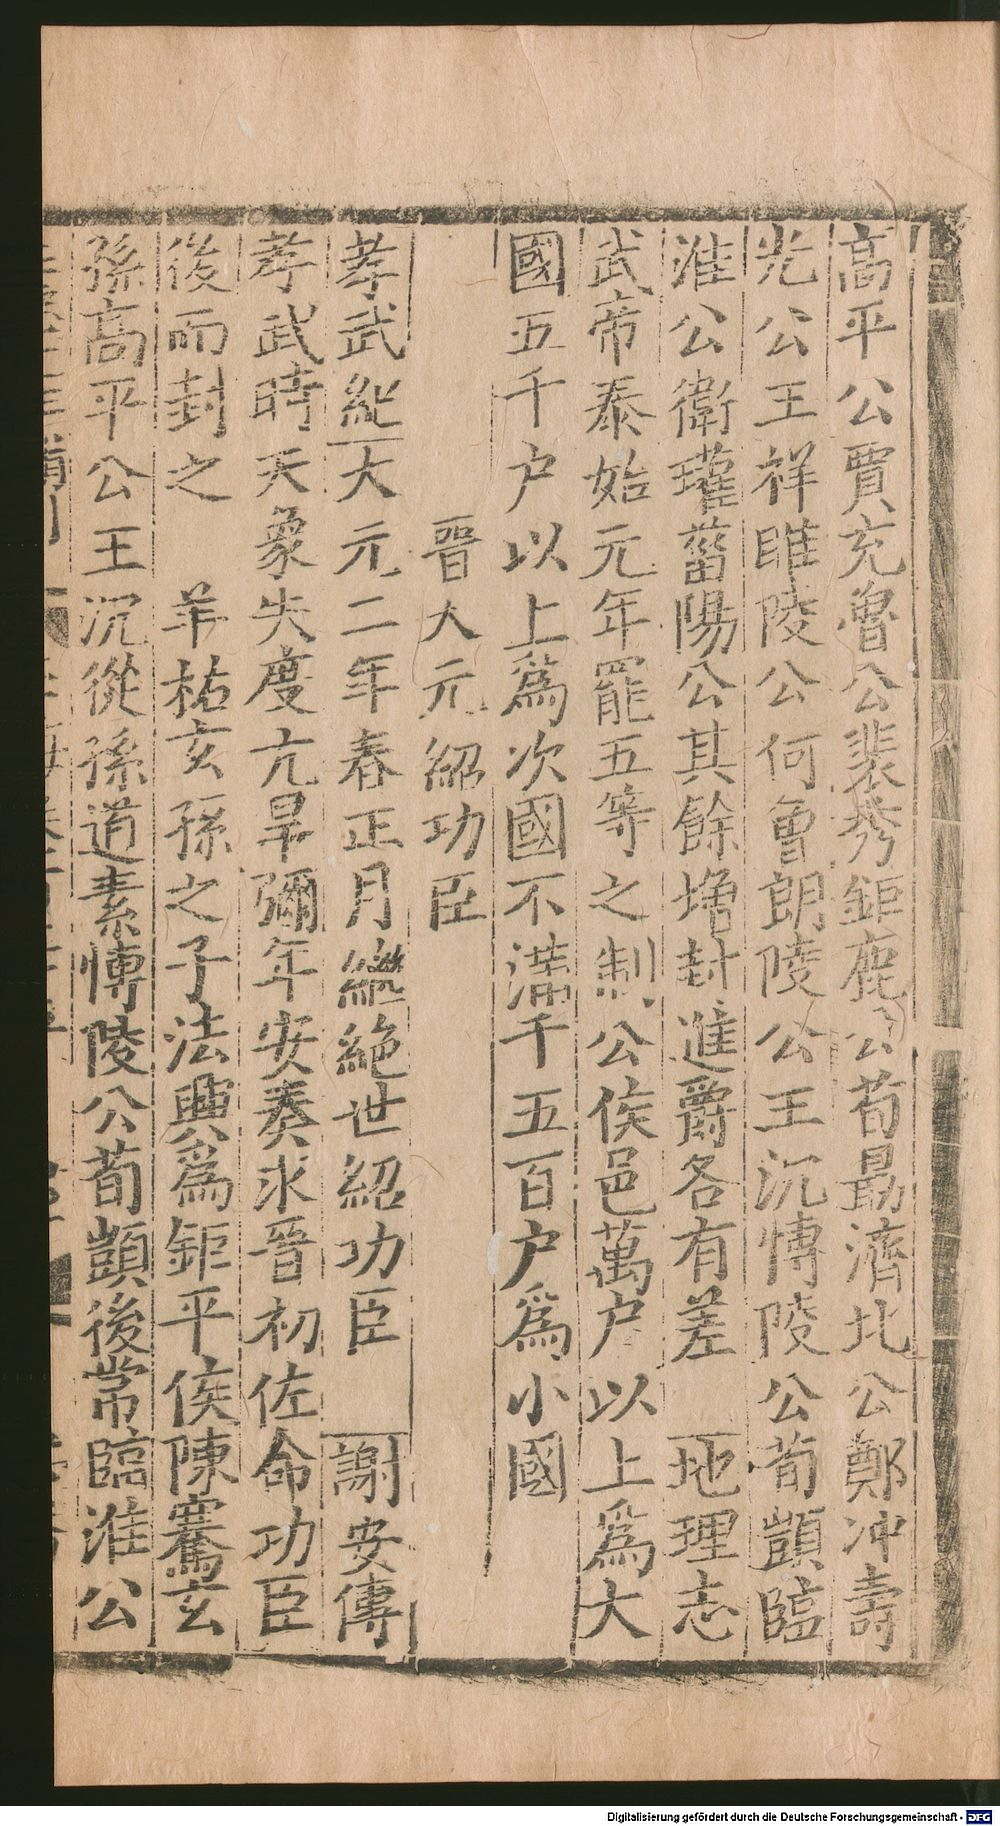 高平公賈充魯公裴秀鉅鹿公荀勗濟北公鄭冲壽
光公王祥睢陵公何曾朗陵公王沉愽陵公荀顗臨
淮公衛瓘菑陽公其餘增封進爵各有差　地理志
武帝泰始元年罷五等之制公侯邑萬户以上爲大
國五千户以上爲次國不滿千五百户爲小國
晉大元紹功臣
孝武紀大元二年春正月繼絶世紹功臣　謝安傳
孝武時天象失度亢旱彌年安奏求晉初佐命功臣
後而封之　羊祜玄孫之子法興爲鉅平侯陳騫玄
孫高平公王沉從孫道素愽陵公荀顗後常臨淮公
Digitalisierung gefördert durch die Deutsche Forschungsgemeinschaft - DFG